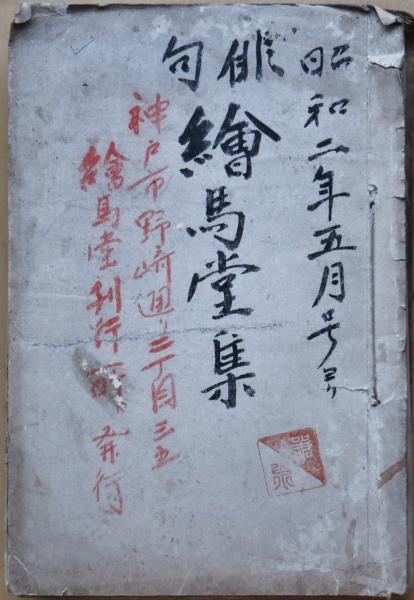 昭和二年五月号ヨリ
俳句
繪馬堂集
神戸市野崎通リ三丁目三五
繪馬堂刊行所 発行